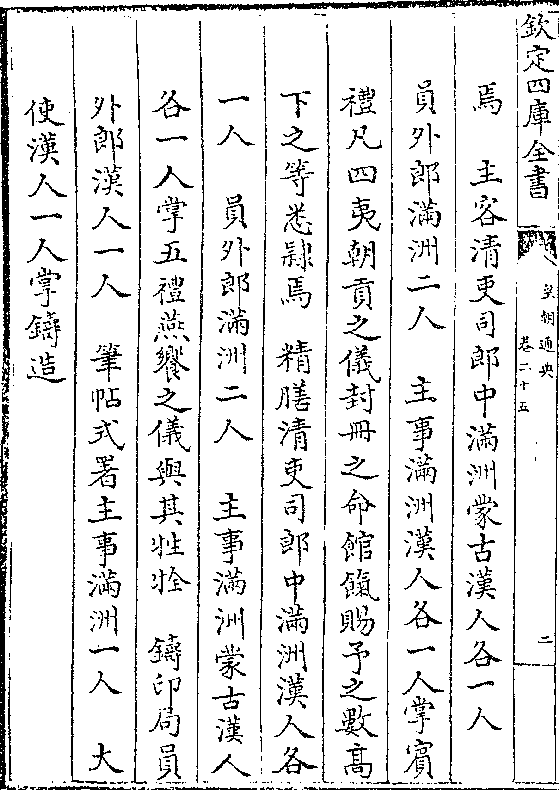 欽定四庫全書
皇朝通典
卷二十五
二
焉　主客清吏司郎中滿洲蒙古漢人各一人
員外郎滿洲二人　主事滿洲漢人各一人掌賓
禮凡四夷朝貢之儀封冊之命館餼賜予之數髙
下之等悉隷焉　精膳清吏司郎中滿洲漢人各
一人　員外郎滿洲二人　主事滿洲蒙古漢人
各一人掌五禮燕饗之儀與其牲牷　鑄印局員
外郎漢人一人　筆帖式署主事滿洲一人　大
使漢人一人掌鑄造